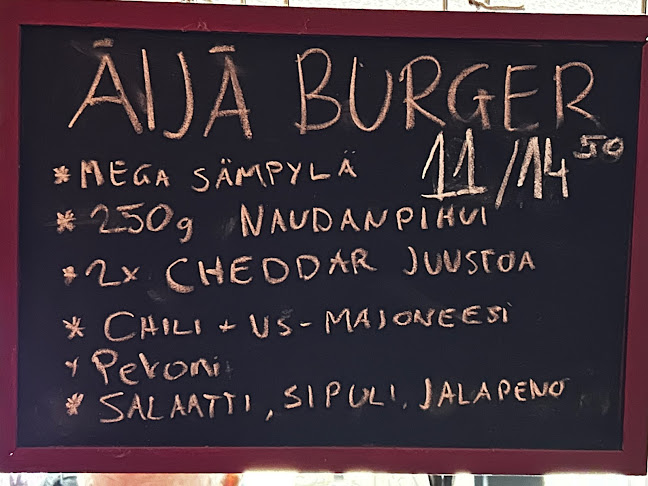 ĀIJĀ BURGER
* MEGA SÄMPYLÄ 11/14 50
* 250g NAUDANPIHVI
* 2x CHEDDAR JUUSTOA
* CHILI + US-MAJONEESI
* Pekoni
* SALAATTI, SIPULI, JALAPENO